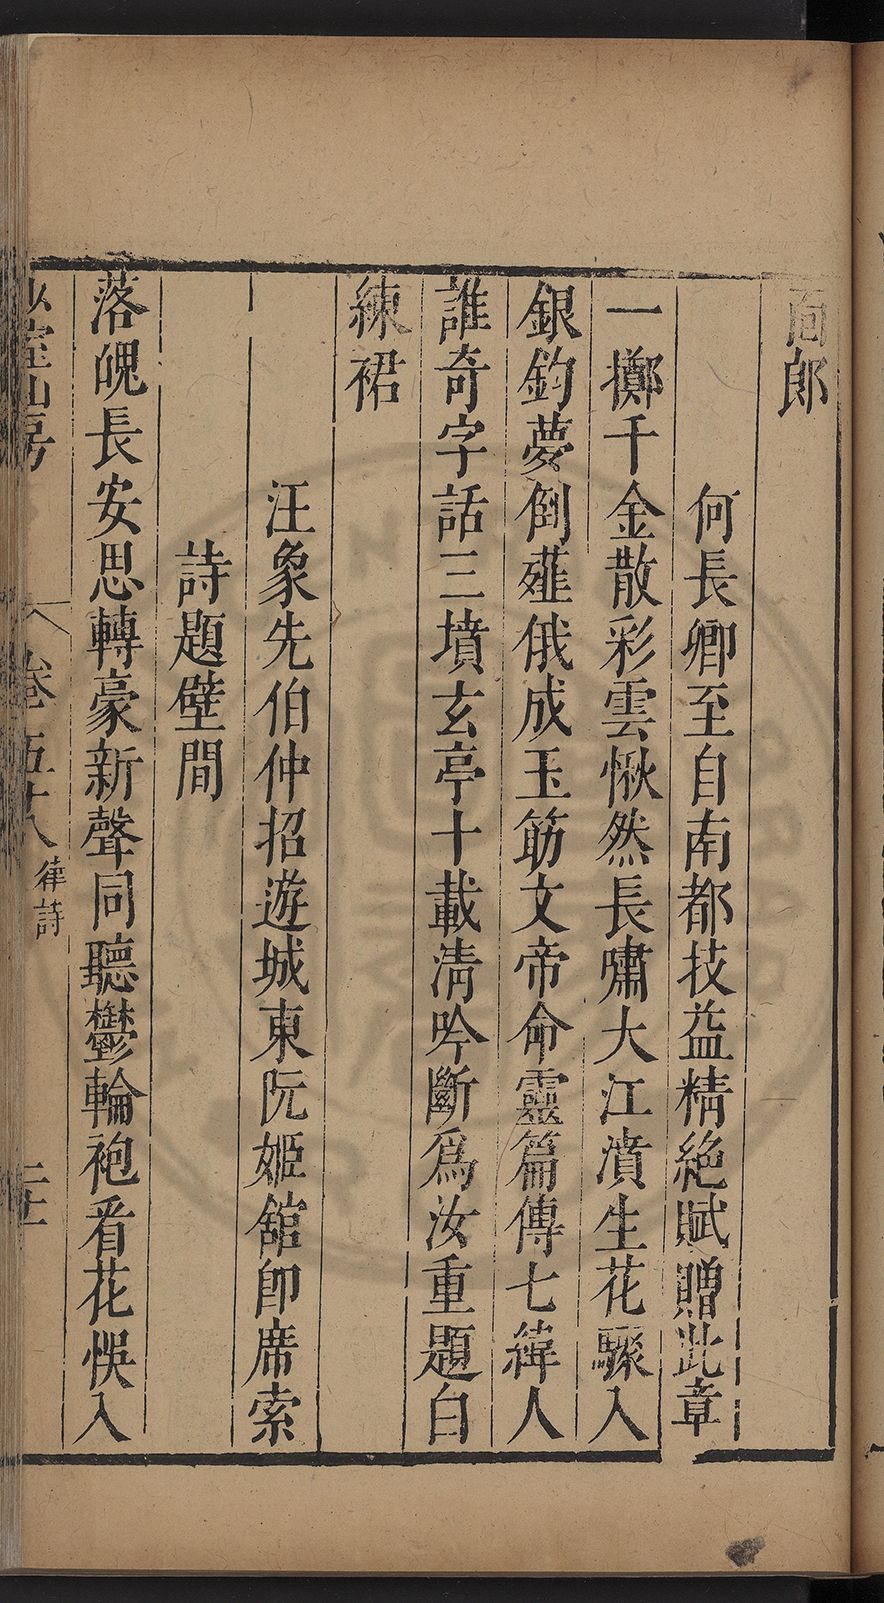 面郎
何長卿至自南都技益精絶賦贈此章
一擲千金散彩雲愀然長嘯大江濆生花驟入
銀鈎夢倒薤俄成玉筯文帝命靈篇傳七緯人
誰奇字話三墳玄亭十載清吟斷爲汝重題白
練裙
汪象先伯仲招遊城東阮姬舘卽席索
詩題壁間
落魄長安思轉豪新聲同聽鬱輪袍看花悞入
少室山房 卷五十八 律詩 二十一